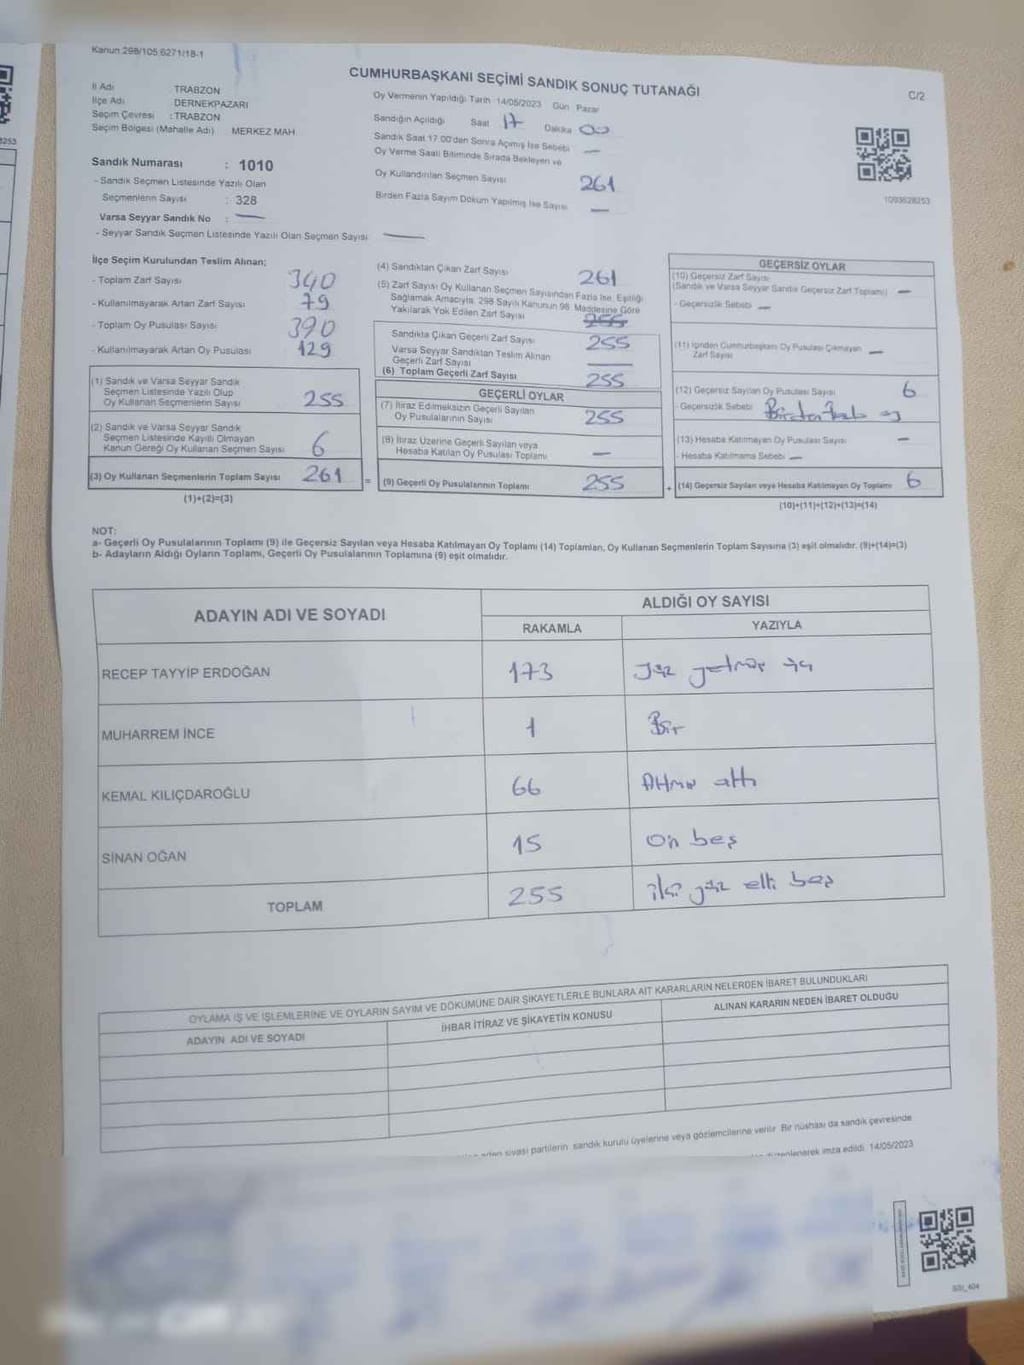 Kanun:298/105.6271/18-1
CUMHURBAŞKANI SEÇİMİ SANDIK SONUÇ TUTANAĞI
C/2
İl Adı : TRABZON
İlçe Adı : DERNEKPAZARI
Seçim Çevresi : TRABZON
Seçim Bölgesi (Mahalle Adı) MERKEZ MAH.
Sandık Numarası : 1010
- Sandık Seçmen Listesinde Yazılı Olan
Seçmenlerin Sayısı : 328
Varsa Seyyar Sandık No : —
- Seyyar Sandık Seçmen Listesinde Yazılı Olan Seçmen Sayısı —
Oy Vermenin Yapıldığı Tarih 14/05/2023 Gün Pazar
Sandığın Açıldığı Saat 17 Dakika 00
Sandık Saat 17.00'den Sonra Açımış İse Sebebi —
Oy Verme Saati Bitiminde Sırada Bekleyen ve
Oy Kullandırılan Seçmen Sayısı 261
Birden Fazla Sayım Döküm Yapılmış İse Sayısı —
1003628253
İlçe Seçim Kurulundan Teslim Alınan;
- Toplam Zarf Sayısı 340
- Kullanılmayarak Artan Zarf Sayısı 79
- Toplam Oy Pusulası Sayısı 390
- Kullanılmayarak Artan Oy Pusulası 129
(1) Sandık ve Varsa Seyyar Sandık
Seçmen Listesinde Yazılı Olup
Oy Kullanan Seçmenlerin Sayısı 255
(2) Sandık ve Varsa Seyyar Sandık
Seçmen Listesinde Kayıtlı Olmayan
Kanun Gereği Oy Kullanan Seçmen Sayısı 6
(3) Oy Kullanan Seçmenlerin Toplam Sayısı 261
(1)+(2)=(3)
(4) Sandıktan Çıkan Zarf Sayısı 261
(5) Zarf Sayısı Oy Kullanan Seçmen Sayısından Fazla İse, Eşitliği
Sağlamak Amacıyla, 298 Sayılı Kanunun 98. Maddesine Göre
Yakılarak Yok Edilen Zarf Sayısı 255
Sandıkta Çıkan Geçerli Zarf Sayısı 255
Varsa Seyyar Sandıktan Teslim Alınan
Geçerli Zarf Sayısı —
(6) Toplam Geçerli Zarf Sayısı 255
GEÇERLİ OYLAR
(7) İtiraz Edilmeksizin Geçerli Sayılan
Oy Pusulalarının Sayısı 255
(8) İtiraz Üzerine Geçerli Sayılan veya
Hesaba Katılan Oy Pusulası Toplamı —
= (9) Geçerli Oy Pusulalarının Toplamı 255
GEÇERSİZ OYLAR
(10) Geçersiz Zarf Sayısı
(Sandık ve Varsa Seyyar Sandık Geçersiz Zarf Toplamı) —
- Geçersizlik Sebebi —
(11) İçinden Cumhurbaşkanı Oy Pusulası Çıkmayan
Zarf Sayısı —
(12) Geçersiz Sayılan Oy Pusulası Sayısı 6
- Geçersizlik Sebebi Birden fazla oy
(13) Hesaba Katılmayan Oy Pusulası Sayısı —
- Hesaba Katılmama Sebebi —
+ (14) Geçersiz Sayılan veya Hesaba Katılmayan Oy Toplamı 6
(10)+(11)+(12)+(13)=(14)
NOT:
a- Geçerli Oy Pusulalarının Toplamı (9) ile Geçersiz Sayılan veya Hesaba Katılmayan Oy Toplamı (14) Toplamları, Oy Kullanan Seçmenlerin Toplam Sayısına (3) eşit olmalıdır. (9)+(14)=(3)
b- Adayların Aldığı Oyların Toplamı, Geçerli Oy Pusulalarının Toplamına (9) eşit olmalıdır.
ADAYIN ADI VE SOYADI
ALDIĞI OY SAYISI
RAKAMLA YAZIYLA
RECEP TAYYİP ERDOĞAN 173 yüz yetmiş üç
MUHARREM İNCE 1 Bir
KEMAL KILIÇDAROĞLU 66 Altmış altı
SİNAN OĞAN 15 On beş
TOPLAM 255 iki yüz elli beş
OYLAMA İŞ VE İŞLEMLERİNE VE OYLARIN SAYIM VE DÖKÜMÜNE DAİR ŞİKAYETLERLE BUNLARA AİT KARARLARIN NELERDEN İBARET BULUNDUKLARI
ADAYIN ADI VE SOYADI İHBAR İTİRAZ VE ŞİKAYETİN KONUSU ALINAN KARARIN NEDEN İBARET OLDUĞU
siyasi partilerin, sandık kurulu üyelerine veya gözlemcilerine verilir. Bir nüshası da sandık çevresinde
düzenlenerek imza edildi. 14/05/2023